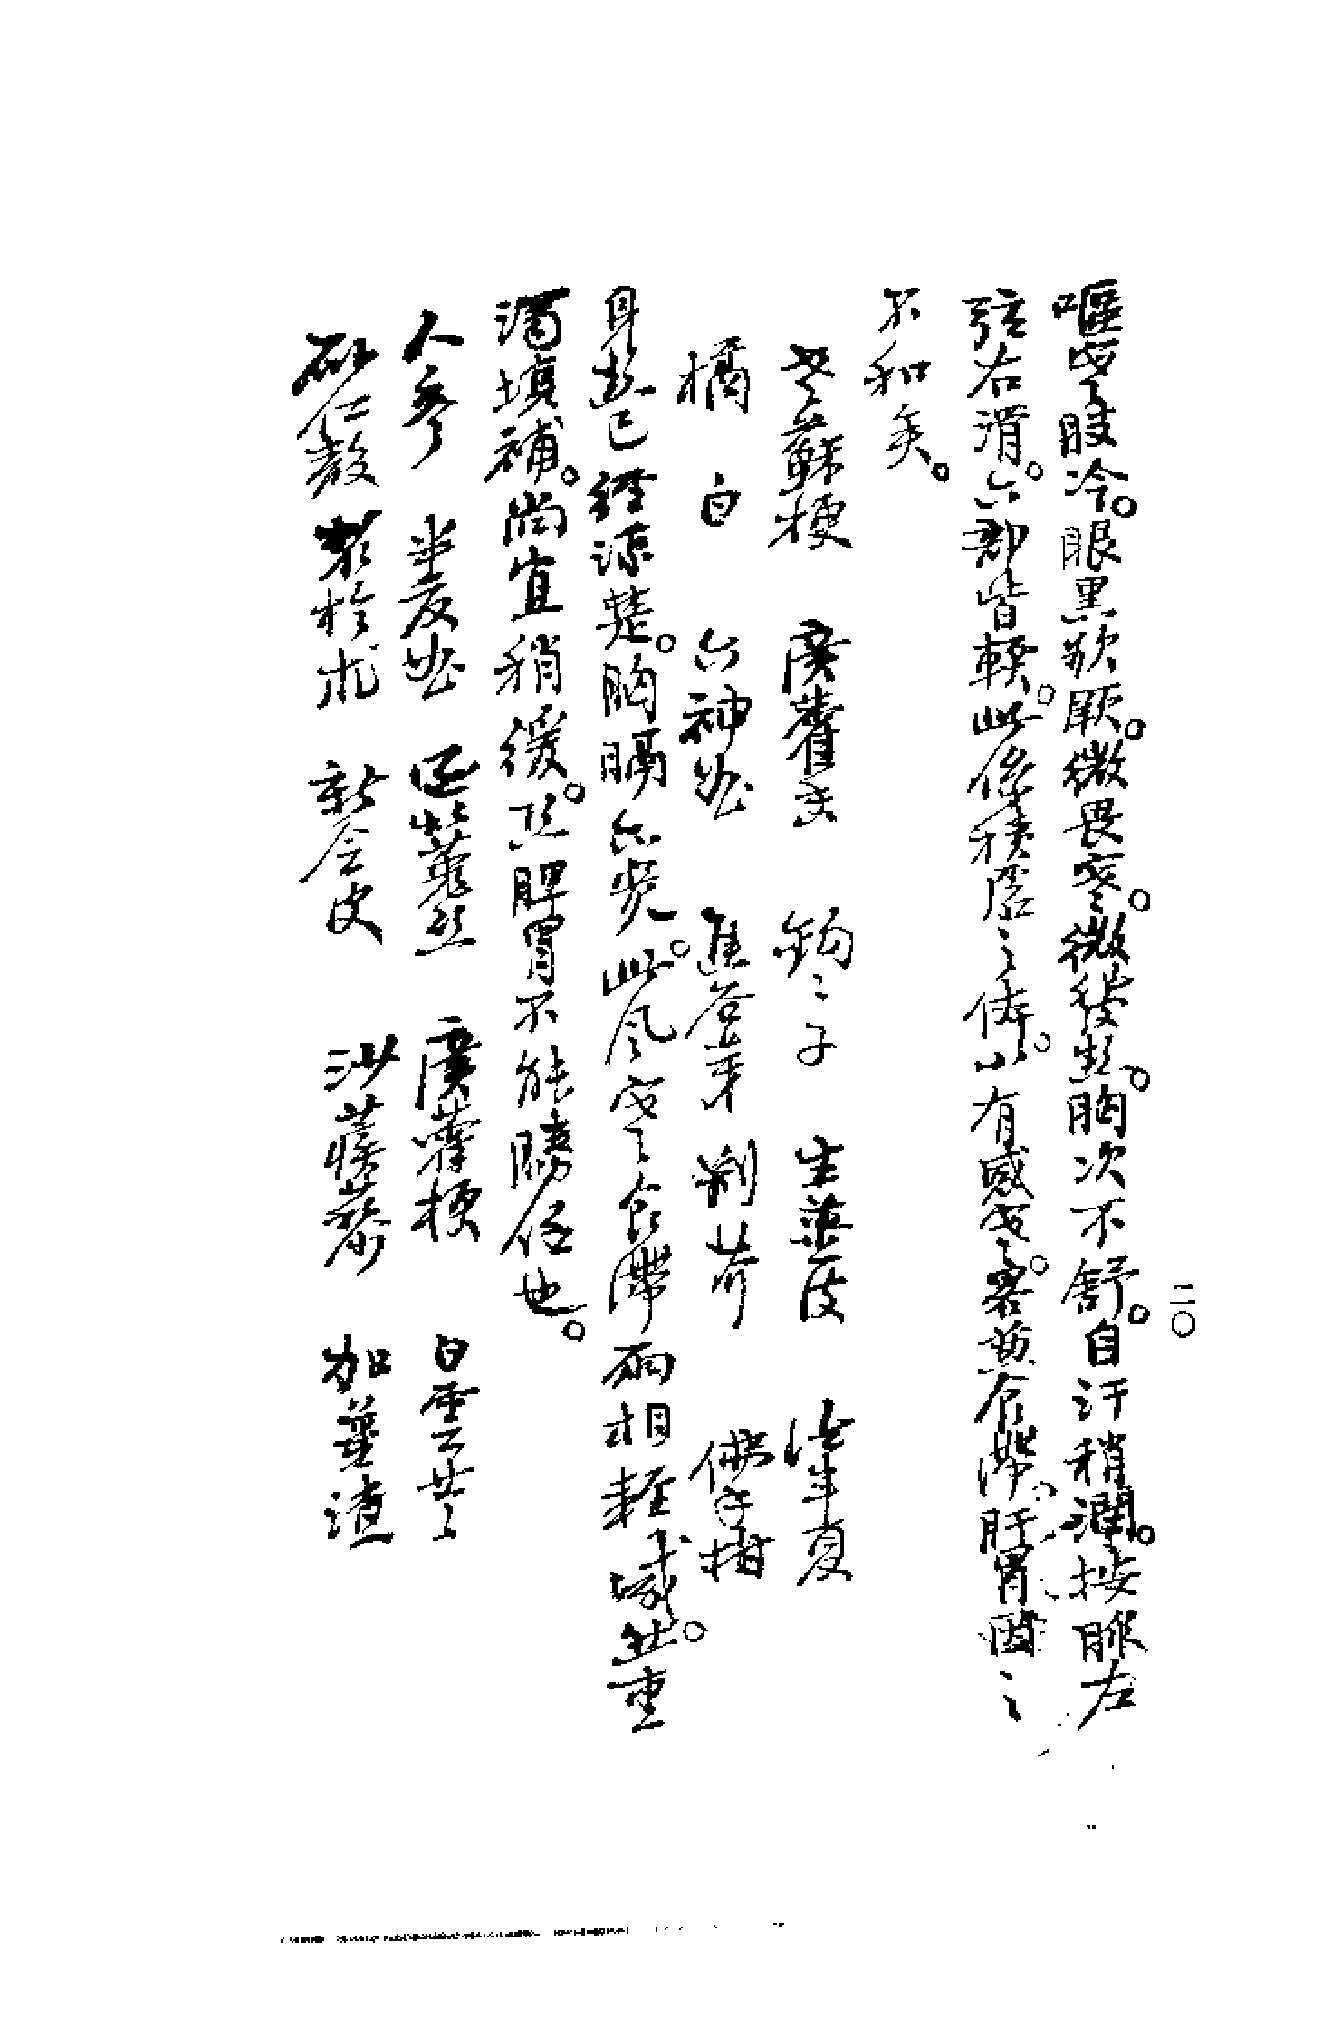 二〇
嘔噦肢冷。眼黑欲厥。微畏寒。微發熱。胸次不舒。自汗稍潤。按脈左
弦右滑。六部皆軟。此係積虛之體。小有感寒。客熱食滯、肝胃因之
不和矣。
老蘇梗 廣藿香 鈎鈎子 生薑皮 法半夏
橘白 六神麯 進谷芽 荆芥 佛手柑
身熱已經涼楚。胸膈亦寬。此風寒食滯兩相輕減。然重
濁填補。尚宜稍緩。恐脾胃不能勝任也。
人參 半夏麯 廣藿梗 白雲苓
砂仁殼 於朮 新會皮 沙蒺藜 加薑渣